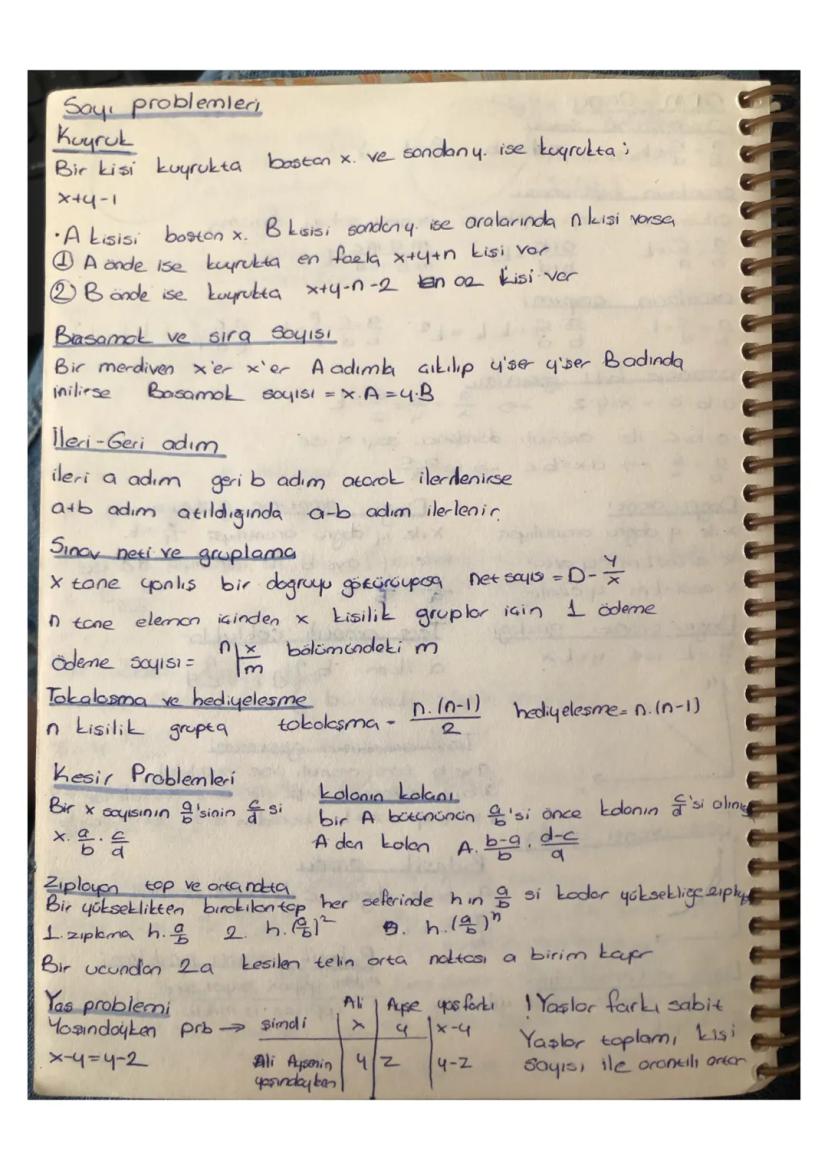 Sayı problemleri
Kuyruk
Bir kişi kuyrukta baştan x. ve sondan y. ise kuyrukta;
x+y-1
• A kişisi baştan x. B kişisi sondan y. ise aralarında n kişi varsa
① A önde ise kuyrukta en fazla x+y+n kişi var
② B önde ise kuyrukta x+y-n-2 en az kişi var
Basamak ve sıra sayısı
Bir merdiven x'er x'er A adımla çıkılıp y'şer y'şer B adında
inilirse Basamak sayısı = x.A = y.B
İleri-Geri adım
ileri a adım geri b adım atarak ilerlenirse
a+b adım atıldığında a-b adım ilerlenir.
Sınav neti ve gruplama
x tane yanlış bir doğruyu götürüyorsa net sayısı = D - Y/x
n tane eleman içinden x kişilik gruplar için 1 ödeme
ödeme sayısı = n | x bölümündeki m
m
Tokalaşma ve hediyeleşme
n kişilik grupta tokalaşma = n.(n-1)/2 hediyeleşme = n.(n-1)
Kesir Problemleri
Bir x sayısının a/b'sinin c/d si
x. a/b . c/d
kalanın kalanı
bir A bütününün a/b'si önce kalanın c/d'si alınış
A dan kalan A. b-a/b . d-c/d
Zıplayan top ve orta nokta
Bir yükseklikten bırakılan top her seferinde h ın a/b si kadar yüksekliğe zıplıyo
1. zıplama h. a/b 2. h.(a/b)² n. h.(a/b)ⁿ
Bir ucundan 2a kesilen telin orta noktası a birim kayar
Yaş problemi
Yaşındayken prb →
x-y=y-z
Ali Ayşe yaş farkı
şimdi x y x-y
Ali Ayşenin yaşındayken y z y-z
! Yaşlar farkı sabit
Yaşlar toplamı, kişi
sayısı ile orantılı artar